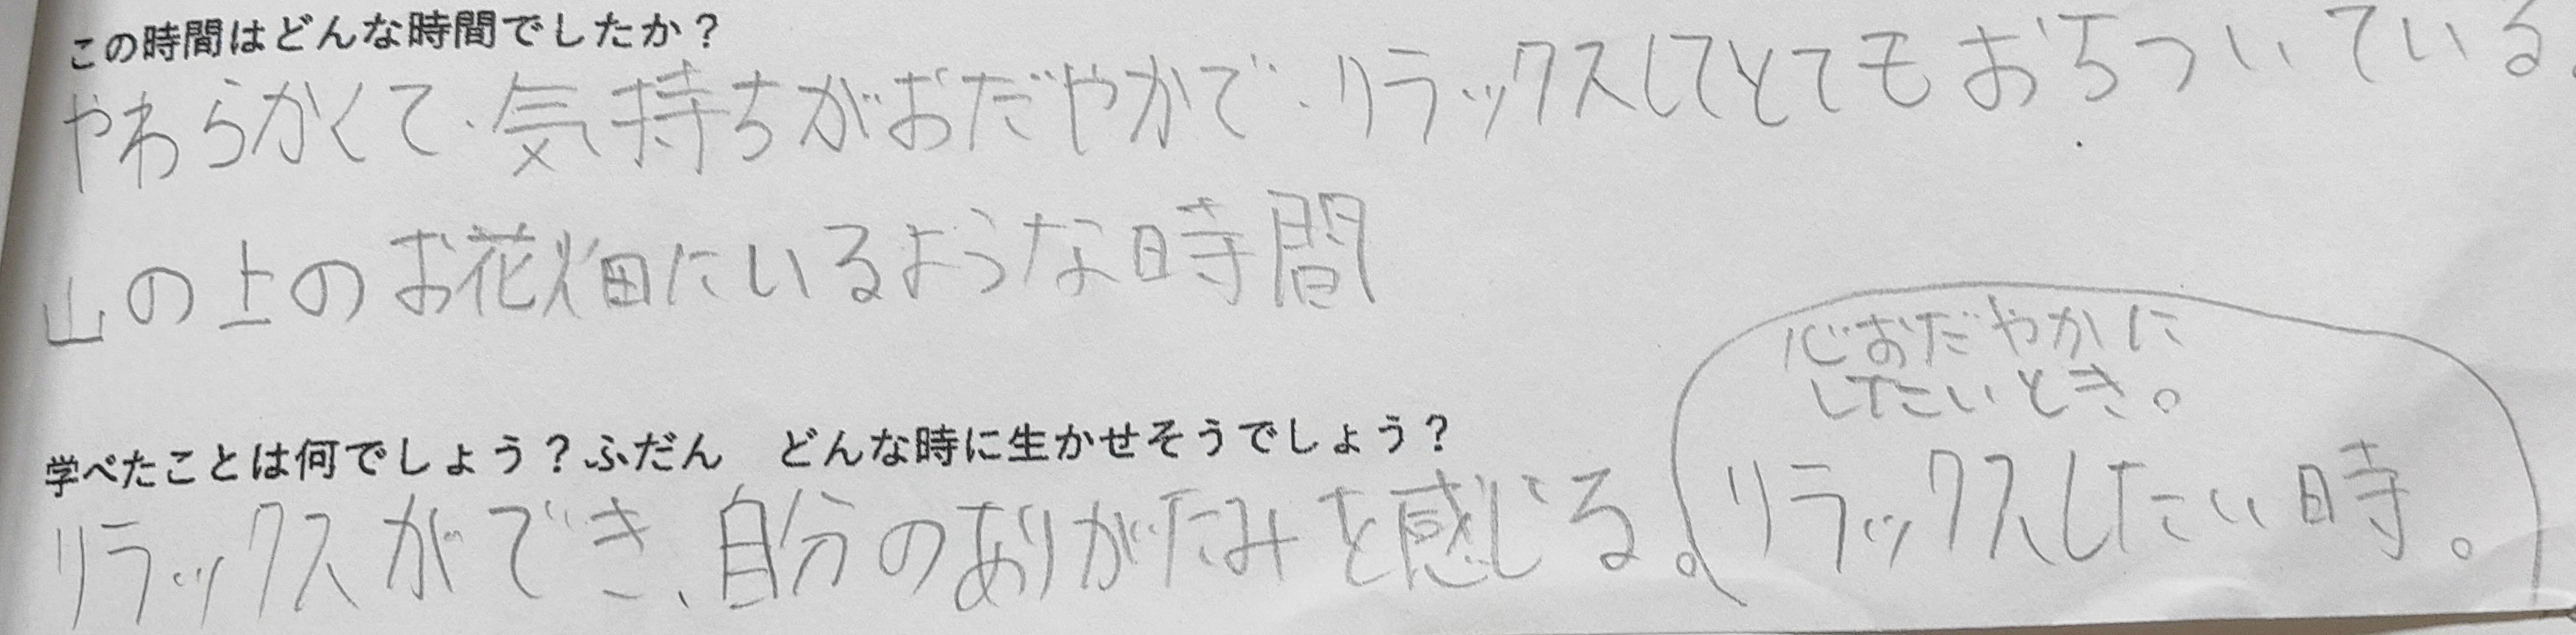 この時間はどんな時間でしたか？
やわらかくて、気持ちがおだやかで、リラックスしてとてもおちついている。
山の上のお花畑にいるような時間
学べたことは何でしょう？ふだん　どんな時に生かせそうでしょう？
リラックスができ、自分のありがたみを感じる。
心おだやかに
したいとき。
リラックスしたい時。